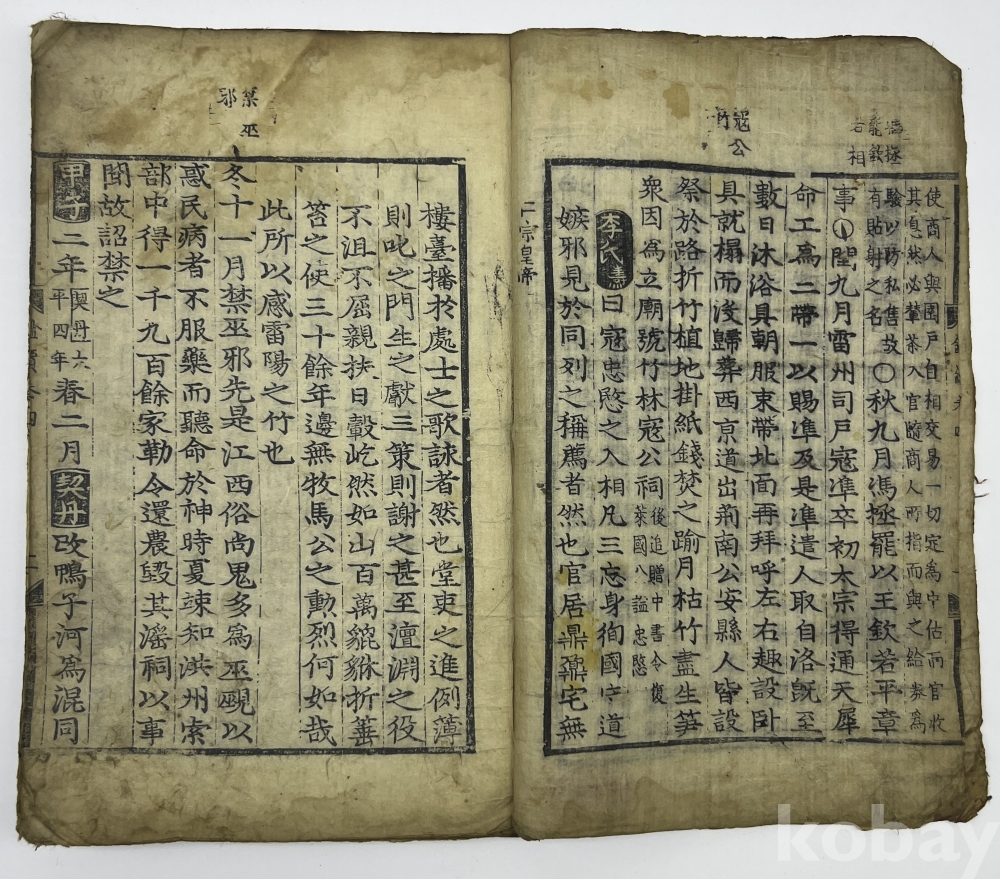 馮拯
罷欽
若相
寇公
竹
使商人與園戶自相交易一切定為中估而官收
其息然必輦茶入官隨商人所指而與之給券為
驗以防私售故
有貼射之名
○秋九月馮拯罷以王欽若平章
事○閏九月雷州司戶寇凖卒初太宗得通天犀
命工爲二帶一以賜凖及是凖遣人取自洛旣至
數日沐浴具朝服束帶北面再拜呼左右趣設臥
具就榻而沒歸葬西京道出荊南公安縣人皆設
祭於路折竹植地掛紙錢焚之踰月枯竹盡生笋
衆因爲立廟號竹林寇公祠
後追贈中書令復
萊國公謚忠愍
李氏燾曰寇忠愍之入相凡三忘身徇國守道
嫉邪見於同列之稱薦者然也官居鼎鼐宅無
仁宗皇帝
禁巫
邪
樓臺播於處士之歌詠者然也堂吏之進例簿
則叱之門生之獻三策則謝之甚至澶淵之役
不沮不屈親扶日轂屹然如山百萬貔貅折箠
笞之使三十餘年邊無牧馬公之勳烈何如哉
此所以感雷陽之竹也
冬十一月禁巫邪先是江西俗尚鬼多爲巫覡以
惑民病者不服藥而聽命於神時夏竦知洪州索
部中得一千九百餘家勒令還農毀其淫祠以事
聞故詔禁之
甲子二年
契丹六
平四年
春二月契丹改鴨子河爲混同